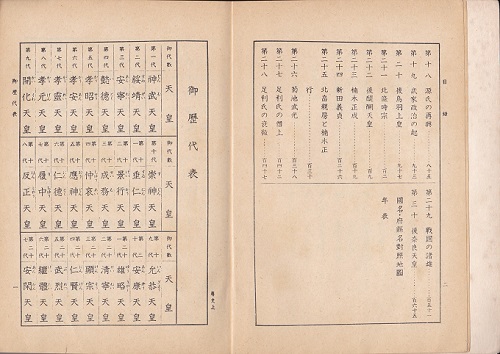 目録
第十八 源氏の再興 八十五
第十九 武家政治の起
第二十 後鳥羽上皇 九十七
第二十一 北條時宗
第二十二 後醍醐天皇
第二十三 楠木正成
第二十四 新田義貞 百二十六
第二十五 北畠親房と楠木正
行 百三十
第二十六 菊池武光
第二十七 足利氏の僭上
第二十八 足利氏の衰微
第二十九 戰國の諸雄 百五十一
第三十 後奈良天皇 百六十五
國名・府縣名對照地圖
年表
二
御歷代表
御代數 天皇
第一代 神武天皇
第二代 綏靖天皇
第三代 安寧天皇
第四代 懿德天皇
第五代 孝昭天皇
第六代 孝安天皇
第七代 孝靈天皇
第八代 孝元天皇
第九代 開化天皇
御代數 天皇
第十代 崇神天皇
第十一代 垂仁天皇
第十二代 景行天皇
第十三代 成務天皇
第十四代 仲哀天皇
第十五代 應神天皇
第十六代 仁德天皇
第十七代 履中天皇
第十八代 反正天皇
御代數 天皇
第十九代 允恭天皇
第二十代 安康天皇
第二十一代 雄略天皇
第二十二代 清寧天皇
第二十三代 顯宗天皇
第二十四代 仁賢天皇
第二十五代 武烈天皇
第二十六代 繼體天皇
第二十七代 安閑天皇
御歷代表
一